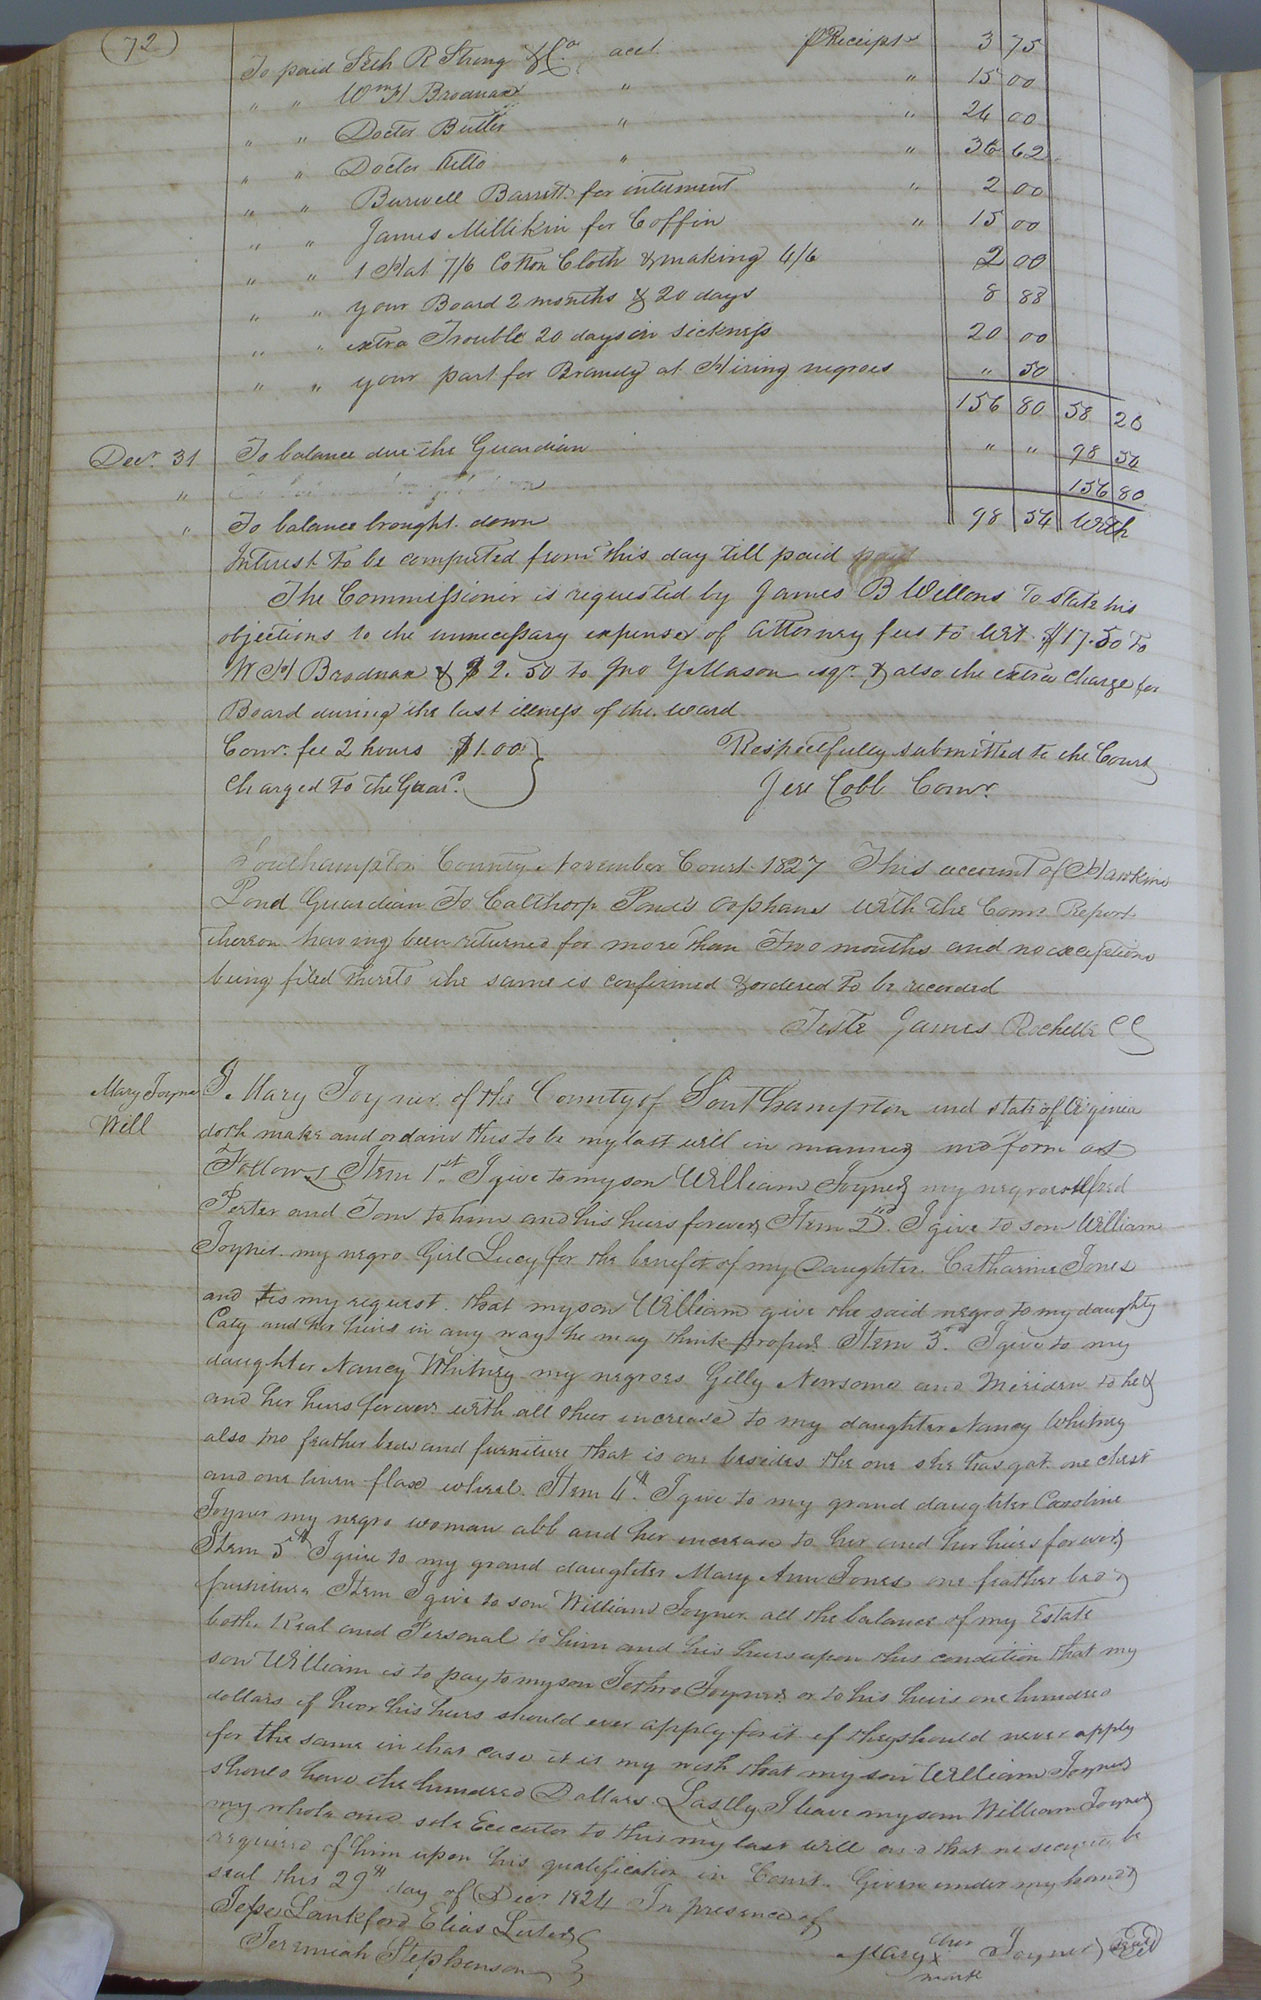 (72)
To paid Seth R Strong & Co. acct. pr Receipts 3 75
" " Wm H Brodnax " " 15 00
" " Doctor Butler " " 24 00
" " Doctor " " 36 62
" " Burwell Barrett for interment " 2 00
" " James Millikin for Coffin " 15 00
" " 1 Hat 7/6 Cotton Cloth & making 4/6 2 00
" " your Board 2 months & 20 days 8 88
" " extra Trouble 20 days in sickness 20 00
" " your part for Brandy at Hiring negroes " 50
156 80 58 26
Decr. 31 To balance due the Guardian " " 98 54
" 156 80
" To balance brought down 98 54 With
Interest to be computed from this day till paid
The Commissioner is requested by James B Wellons to state his
objections to the unnecessary expenses of attorney fees to wit $17.50 to
W H Brodnax & $2.50 to Jno Y Mason esqr. & also the extra charge for
Board during the last illness of the ward
Comr. fee 2 hours $1.00 } Respectfully submitted to the Court
Charged to the Guar. Jere Cobb Comr.
Southampton County November Court 1827 This account of Hawkins
Pond Guardian To Calthorp Pond's orphans with the Comr Report
thereon having been returned for more than Two months and no exceptions
being filed thereto the same is confirmed & ordered to be recorded
Teste James Rochelle CC
Mary Joyner
Will
I. Mary Joyner of the County of Southampton and state of Virginia
doth make and ordain this to be my last will in manner and form as
Follows Item 1st. I give to my son William Joyner my negroes Alfred
Peter and Tom to him and his heirs forever Item 2D. I give to son William
Joyner my negro Girl Lucy for the benefit of my Daughter Catharine Jones
and tis my request that my son William give the said negro to my daughter
Caty and her heirs in any way he may think proper Item 3rd. I give to my
daughter Nancy Whitney my negroes Gilly Newsome and to her
and her heirs forever with all their increase to my daughter Nancy Whitney
also two feather beds and furniture that is one besides the one she has got one chest
and one linen flax wheel. Item 4th. I give to my grand daughter Caroline
Joyner my negro woman abb and her increase to her and her heirs forever
Item 5th I give to my grand daughter Mary Ann Jones one feather bed &
furniture Item I give to son William Joyner all the balance of my Estate
both Real and Personal to him and his heirs upon this condition that my
son William is to pay to my son Jethro Joyner or to his heirs one hundred
dollars if he or his heirs should ever apply for it if they should never apply
for the same in that case it is my wish that my son William Joyner
should have the hundred Dollars Lastly I leave my son William Joyner
my whole and sole Executor to this my last will and that no security be
required of him upon his qualification in Court. Given under my hand &
seal this 29th day of Decr 1824 In presence of
Jesse Lankford Elias Lester
Jeremiah Stephenson
Mary her X mark Joyner seal